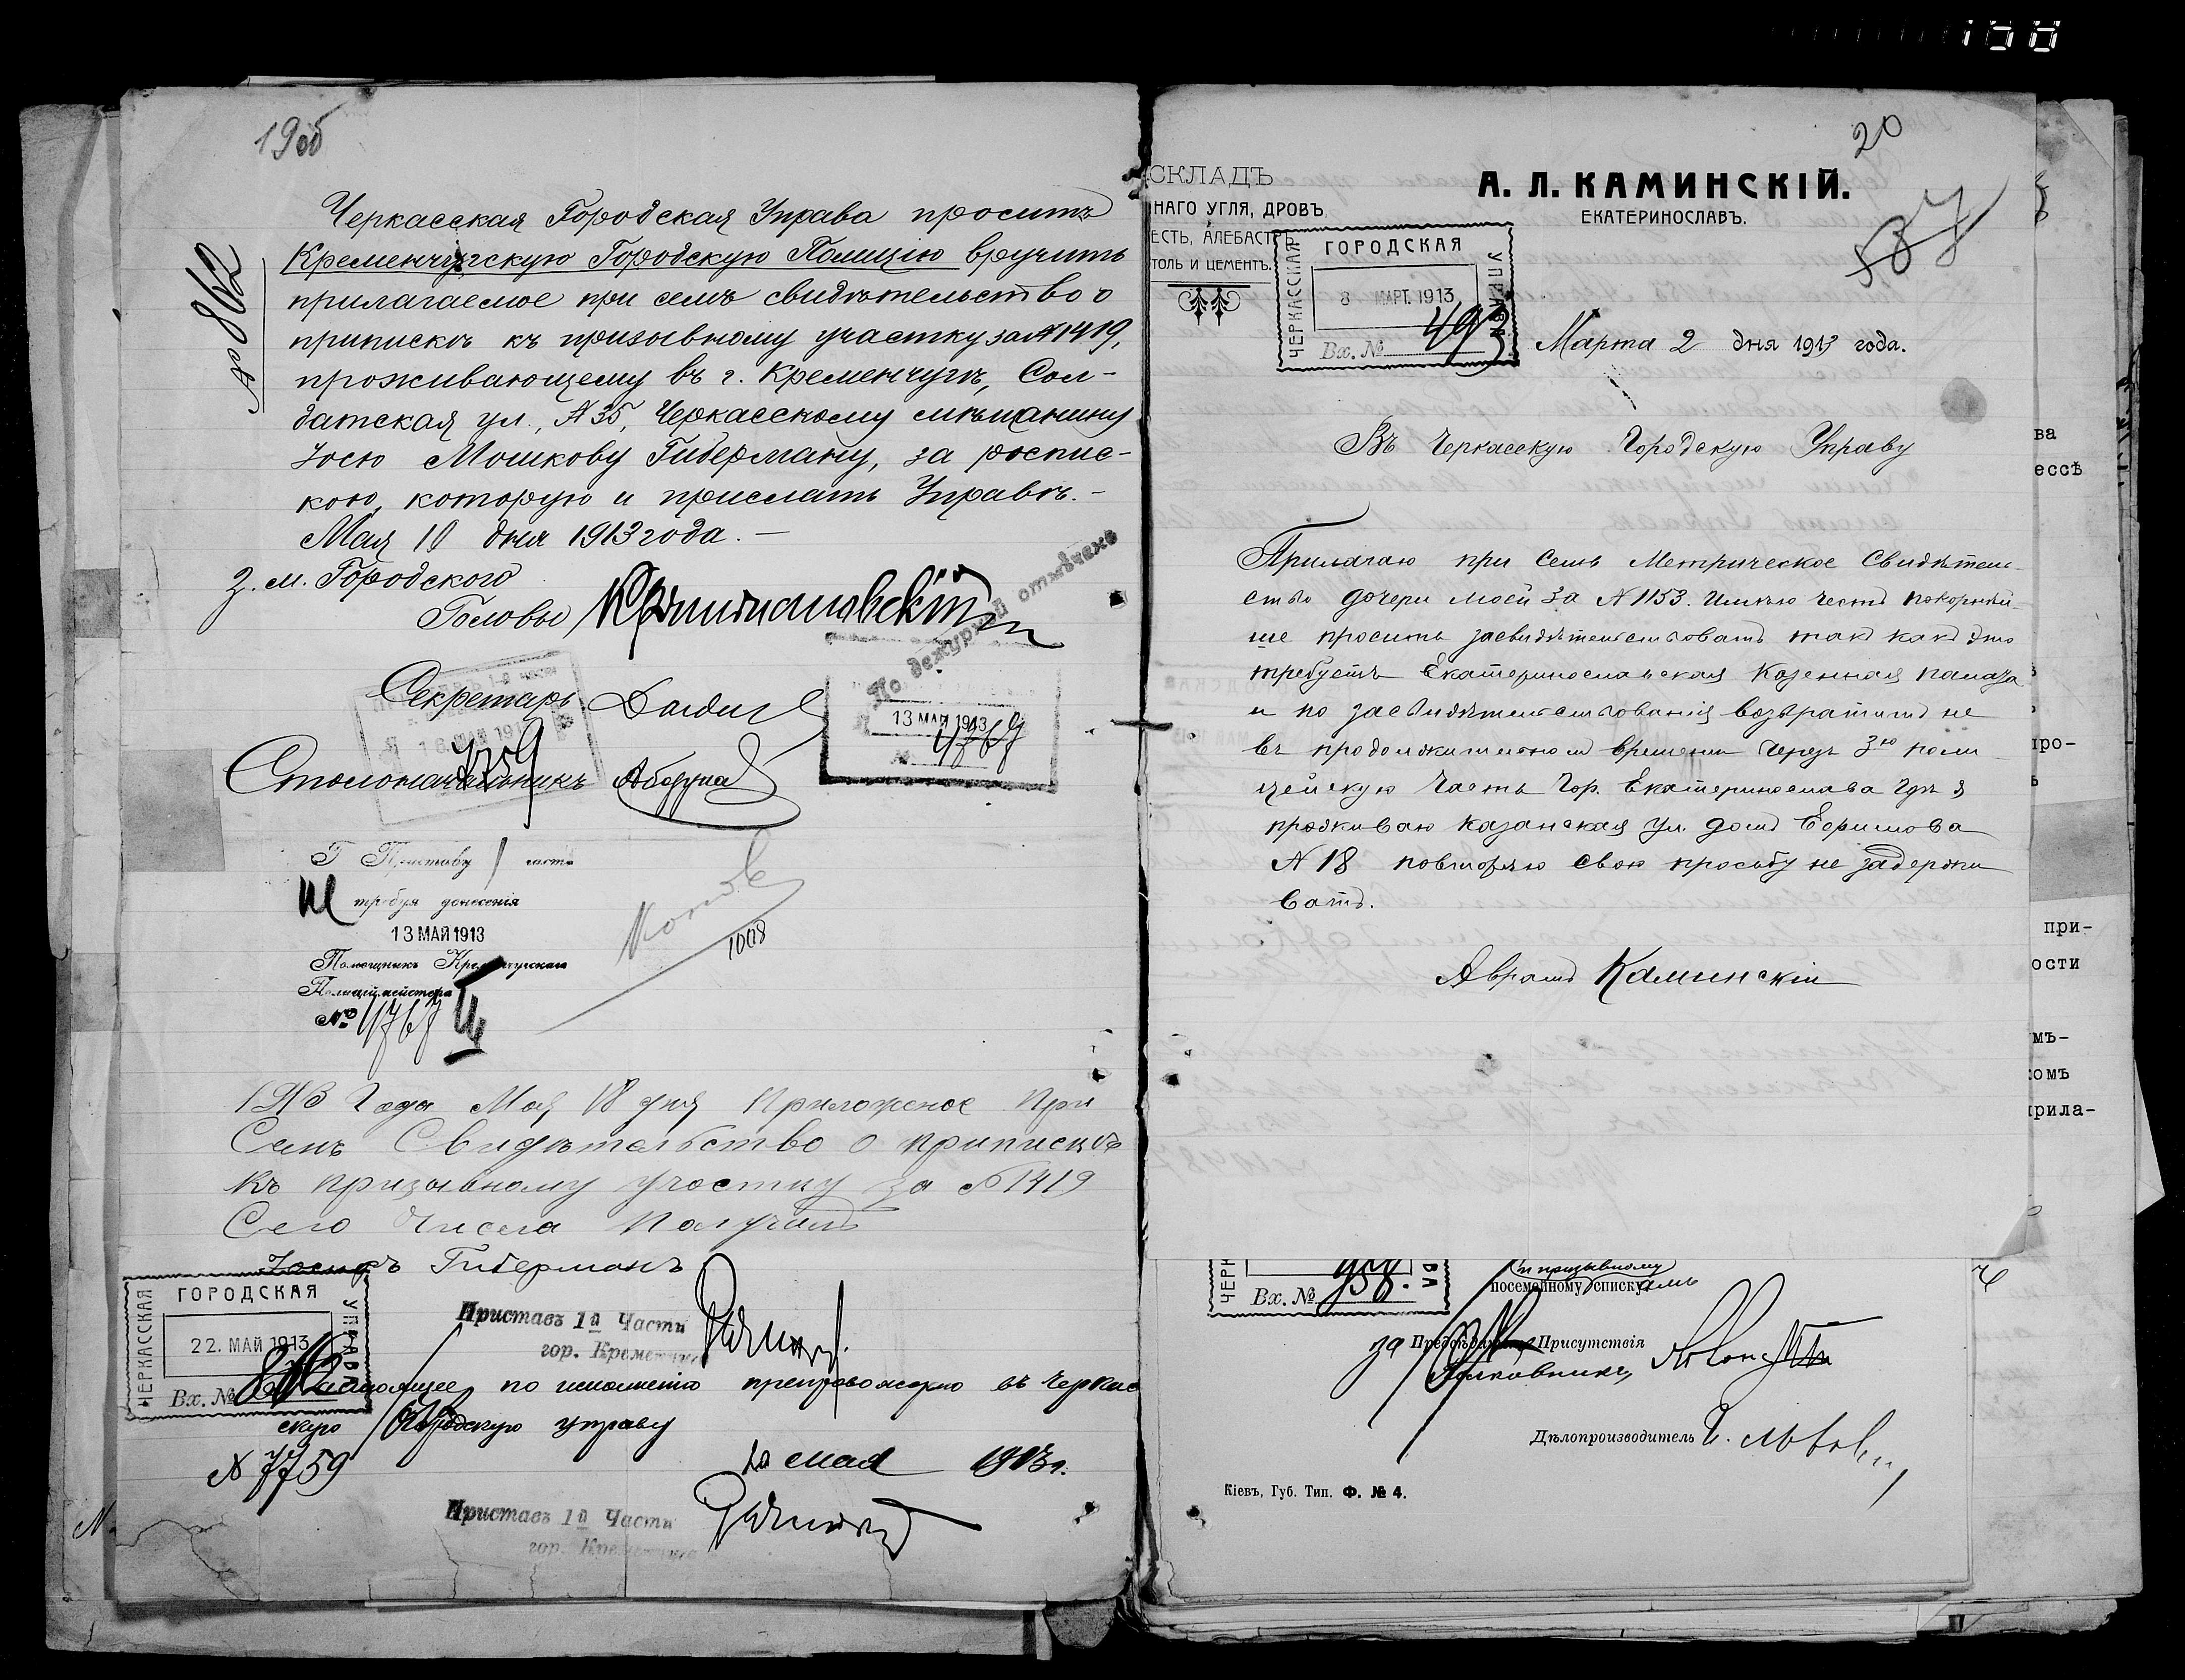 158
Черкасская Городская Управа проситъ
Кременчугскую Городскую Полицію вручить
прилагаемое при семъ свидѣтельство о
припискѣ къ призывному участку за № 1419,
проживающему въ г. Кременчугѣ, Сол-
датская ул., № 35, Черкасскому мѣщанину
Іосю Мошкову Гиберману, за роспис-
кою, которую и прислать Управѣ.-
Мая 10 дня 1913 года.-
№ 862
З. м. Городского
Головы
Секретарь
Столоначальникъ
По дежурной отмѣчено
13 МАЙ 1913
7759
Г Приставу 1 части
требуя донесенія
13 МАЙ 1913
Помощникъ Кременчугскаго
Полицiймейстера
№
1913 Года Мая 18 дня Приложеное При
Семъ Свидѣтельство о приписки
къ призывному участку за № 1419
Сего Числа Получилъ
Іосифъ Гиберманъ
ЧЕРКАССКАЯ ГОРОДСКАЯ УПРАВА
22. МАЙ 1913
Вх. №
Приставъ 1й Части
гор. Кременчуга
Настоящее по исполнению препровождаю въ Черкас
скую Городскую управу
№ 7759
20 мая 1913 г.
Приставъ 1й Части
гор. Кременчуга
20
СКЛАДЪ
НАГО УГЛЯ, ДРОВЪ
ЕСТЬ, АЛЕБАСТРЪ
ТОЛЬ И ЦЕМЕНТЪ.
А. Л. КАМИНСКІЙ.
ЕКАТЕРИНОСЛАВЪ.
587
ЧЕРКАССКАЯ ГОРОДСКАЯ УПРАВА
8 МАРТ. 1913
Вх. № 493
Марта 2 дня 1913 года.
Въ Черкасскую Городскую Управу
Прилагаю при семъ Метрическое Свидѣтель-
ство дочери моей за № 1153. Имѣю честь покорнѣй-
ше просить засвидѣтельствовать такъ какъ это
требуетъ Екатеринославская Казенная палата
и по засвидѣтельствованія возвратить не
въ продолжительномъ времени Черезъ 3ю поли
цейскую Часть Гор. Екатеринослава гдѣ я
проживаю Казанская ул. домъ Ефимова
№ 18 повторяю свою просьбу не задержи
вать.
Аврамъ Каминскій
Вх. № 958.
призывному
посемейному списку
за Предсѣдателя Присутствія
Полковникъ
Дѣлопроизводитель
Кіевъ, Губ. Тип. Ф. № 4.
ва
ессѣ
про-
ъ
при-
ости
мъ-
комъ
прила-